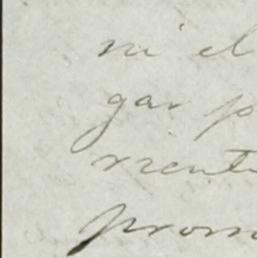 ni el
gar p
mentu
prom